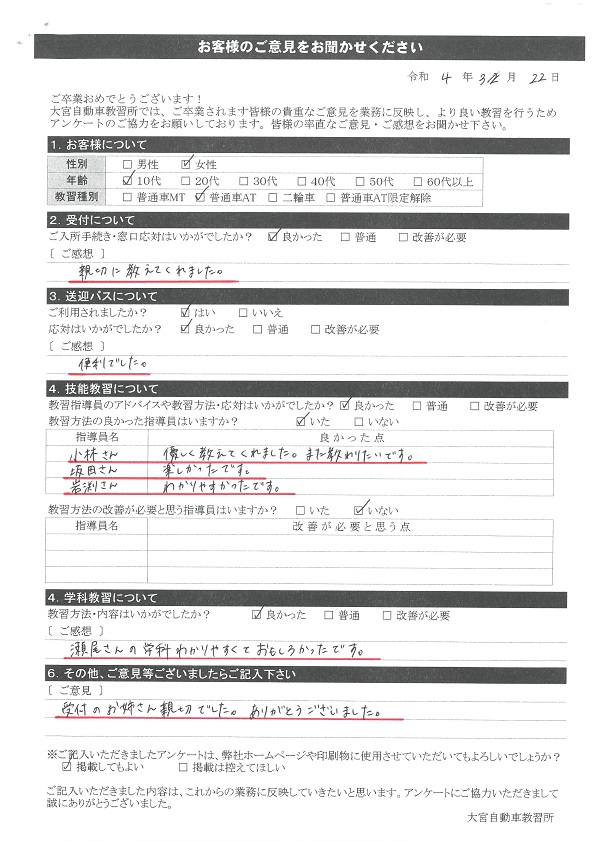 お客様のご意見をお聞かせください
令和 4 年 3 月 22 日
ご卒業おめでとうございます！
大宮自動車教習所では、ご卒業されます皆様の貴重なご意見を業務に反映し、より良い教習を行うため
アンケートのご協力をお願いしております。皆様の率直なご意見・ご感想をお聞かせ下さい。
1. お客様について
性別 □ 男性 ☑ 女性
年齢 ☑ 10代 □ 20代 □ 30代 □ 40代 □ 50代 □ 60代以上
教習種別 □ 普通車MT ☑ 普通車AT □ 二輪車 □ 普通車AT限定解除
2. 受付について
ご入所手続き・窓口応対はいかがでしたか？ ☑ 良かった □ 普通 □ 改善が必要
［ ご感想 ］
親切に教えてくれました。
3. 送迎バスについて
ご利用されましたか？ ☑ はい □ いいえ
応対はいかがでしたか？ ☑ 良かった □ 普通 □ 改善が必要
［ ご感想 ］
便利でした。
4. 技能教習について
教習指導員のアドバイスや教習方法・応対はいかがでしたか？ ☑ 良かった □ 普通 □ 改善が必要
教習方法の良かった指導員はいますか？ ☑ いた □ いない
指導員名 良かった点
小林さん 優しく教えてくれました。また教わりたいです。
坂田さん 楽しかったです。
岩渕さん わかりやすかったです。
教習方法の改善が必要と思う指導員はいますか？ □ いた ☑ いない
指導員名 改善が必要と思う点
4. 学科教習について
教習方法・内容はいかがでしたか？ ☑ 良かった □ 普通 □ 改善が必要
［ ご感想 ］
瀬尾さんの学科わかりやすくておもしろかったです。
6. その他、ご意見等ございましたらご記入下さい
［ ご意見 ］
受付のお姉さん親切でした。ありがとうございました。
※ご記入いただきましたアンケートは、弊社ホームページや印刷物に使用させていただいてもよろしいでしょうか？
☑ 掲載してもよい □ 掲載は控えてほしい
ご記入いただきました内容は、これからの業務に反映していきたいと思います。アンケートにご協力いただきまして
誠にありがとうございました。
大宮自動車教習所